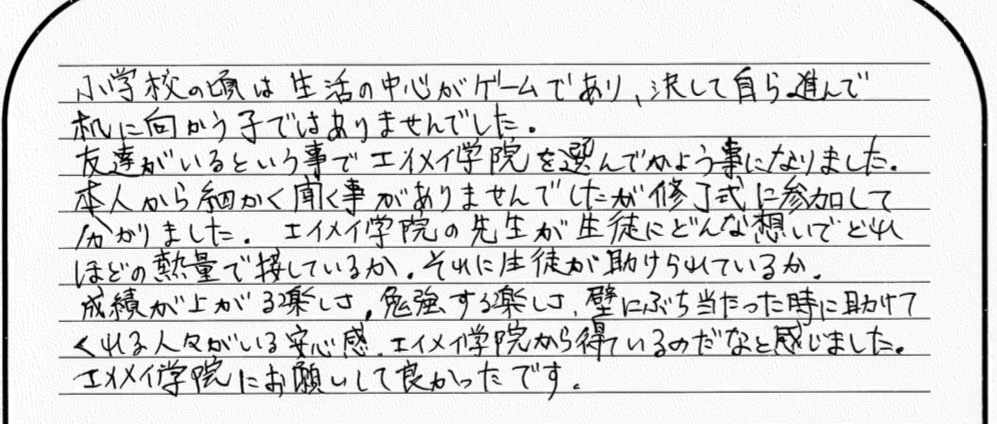 小学校の頃は生活の中心がゲームであり、決して自ら進んで
机に向かう子ではありませんでした。
友達がいるという事でエイメイ学院を選んでかよう事になりました。
本人から細かく聞く事がありませんでしたが修了式に参加して
分かりました。エイメイ学院の先生が生徒にどんな想いでどれ
ほどの熱量で接しているか。それに生徒が助けられているか。
成績が上がる楽しさ、勉強する楽しさ、壁にぶち当たった時に助けて
くれる人々がいる安心感、エイメイ学院から得ているのだなと感じました。
エイメイ学院にお願いして良かったです。